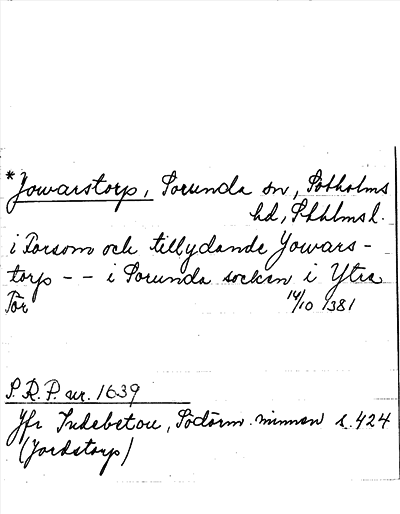 *Jowarstorp, Sorunda sn, Sotholms
hd, Sthlms l.
i Torsom och tillydande Jowars-
torp - - i Sorunda socken i Ytra
Tör 14/10 1381
S.R.P. nr. 1639
Jfr Indebetou, Södorm. minnen s. 424
(Jordstorp)